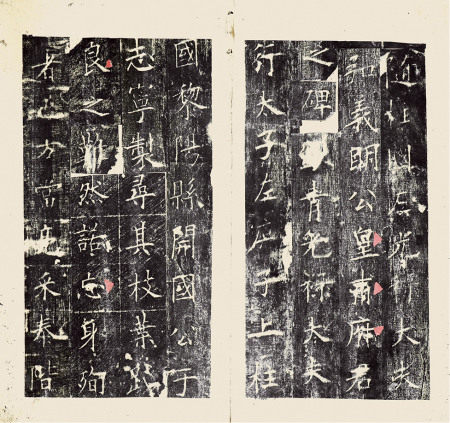 隨柱國左光祿大夫
弘義明公皇甫府君
之碑 青光祿大夫
行太子左庶子上柱
國黎陽縣開國公于
志寧製尋其枝葉
良之對然諾忘身殉
者 方當亮采泰階